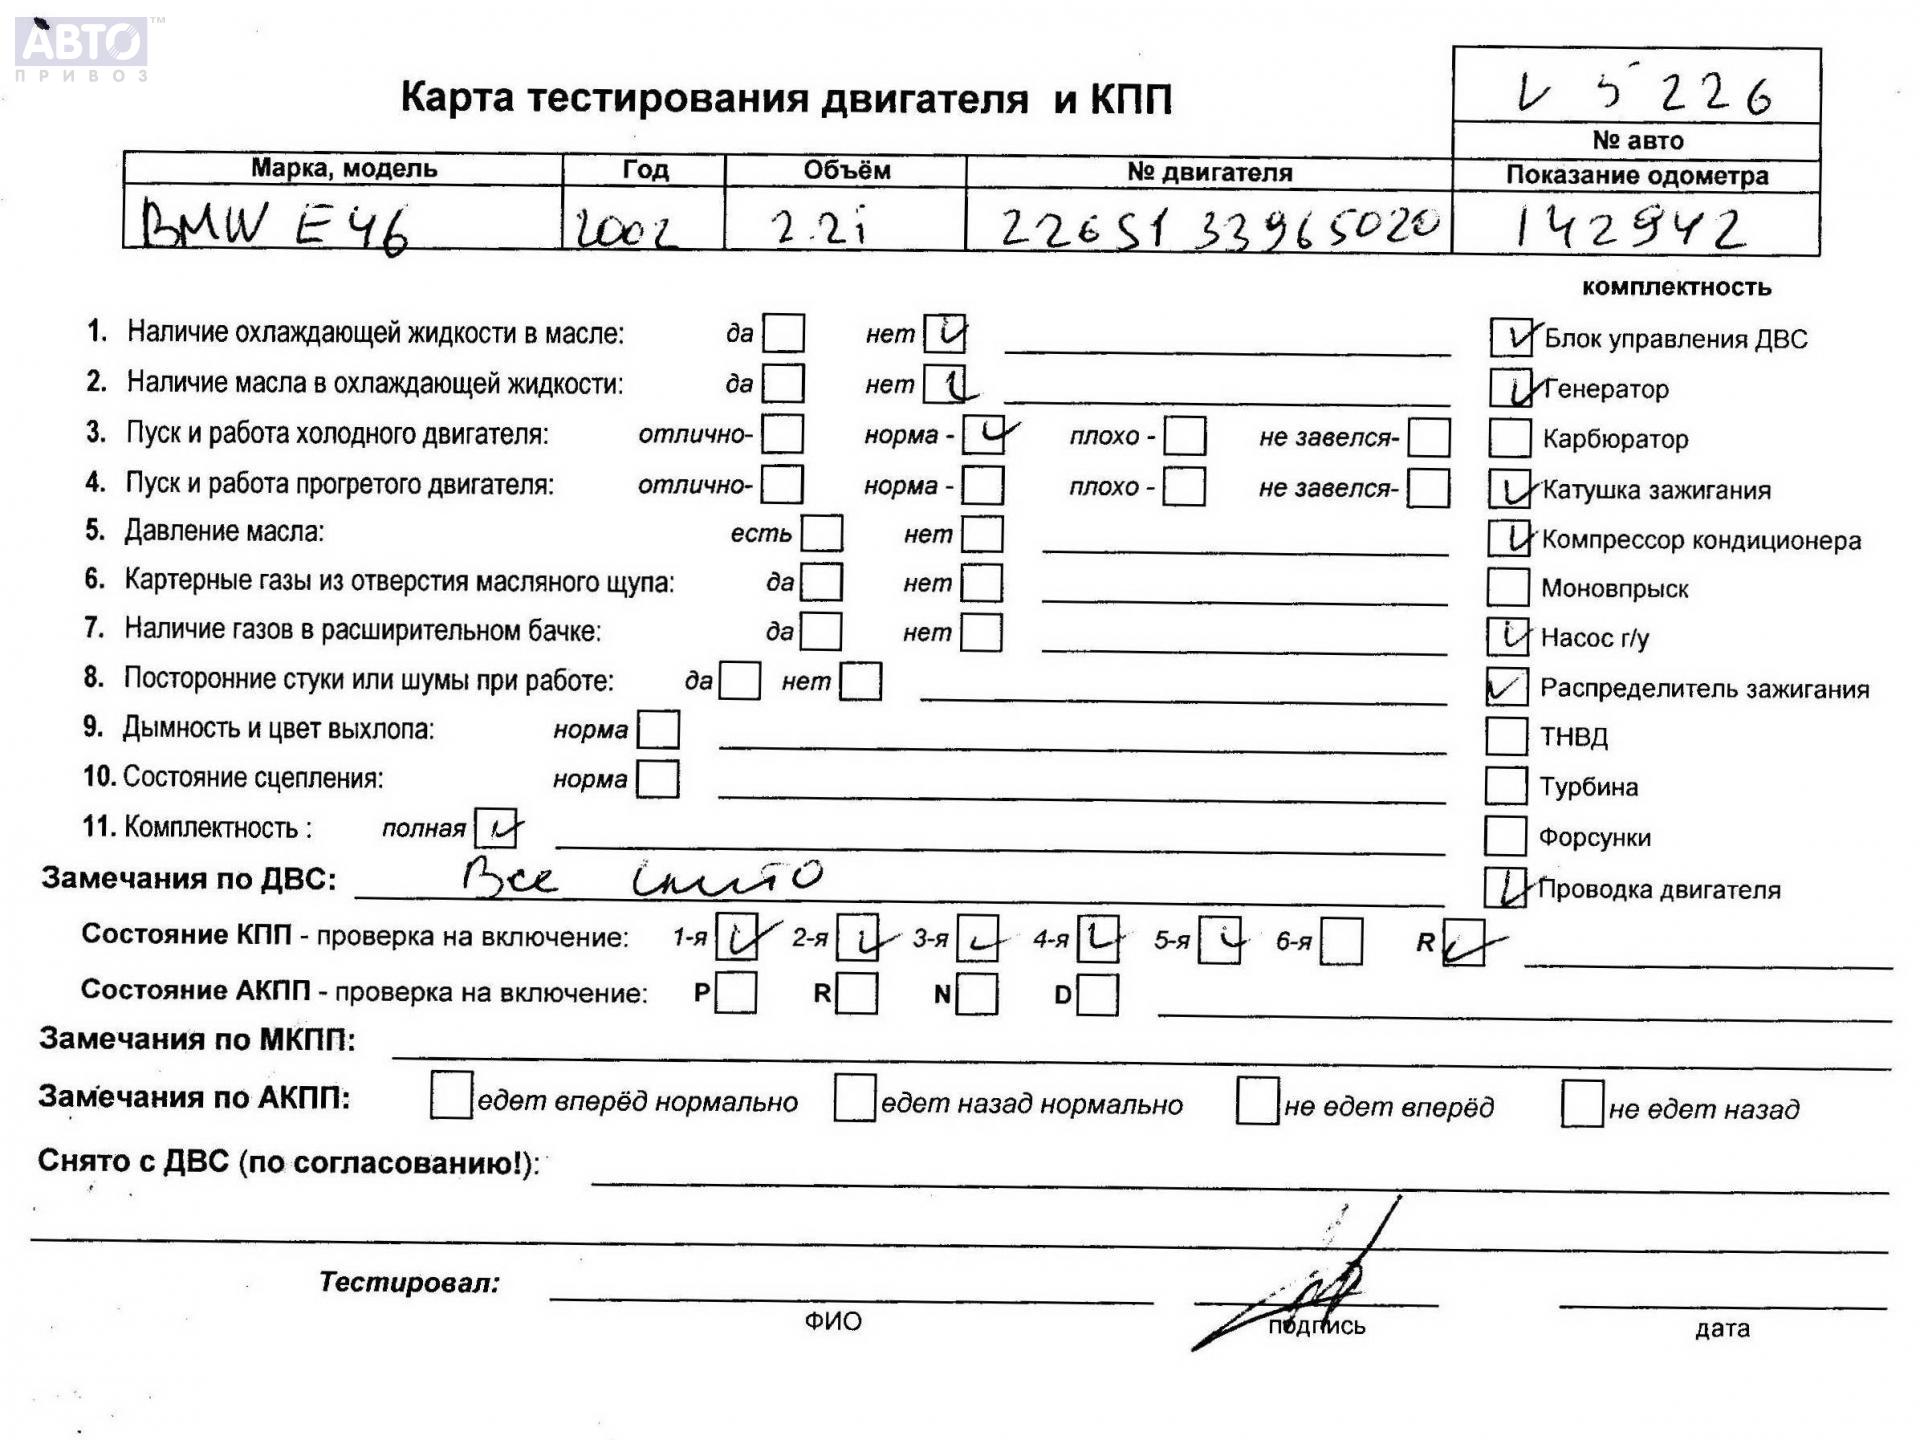 АВТО ™
ПРИВОЗ
Карта тестирования двигателя и КПП
V 5226
№ авто
Марка, модель Год Объём № двигателя Показание одометра
BMW E46 2002 2.2i 226S1 33965020 142942
комплектность
1. Наличие охлаждающей жидкости в масле: да нет
Блок управления ДВС
2. Наличие масла в охлаждающей жидкости: да нет
Генератор
3. Пуск и работа холодного двигателя: отлично- норма - плохо - не завелся-
Карбюратор
4. Пуск и работа прогретого двигателя: отлично- норма - плохо - не завелся-
Катушка зажигания
5. Давление масла: есть нет
Компрессор кондиционера
6. Картерные газы из отверстия масляного щупа: да нет
Моновпрыск
7. Наличие газов в расширительном бачке: да нет
Насос г/у
8. Посторонние стуки или шумы при работе: да нет
Распределитель зажигания
9. Дымность и цвет выхлопа: норма
ТНВД
10. Состояние сцепления: норма
Турбина
11. Комплектность : полная
Форсунки
Замечания по ДВС: Все
Проводка двигателя
Состояние КПП - проверка на включение: 1-я 2-я 3-я 4-я 5-я 6-я R
Состояние АКПП - проверка на включение: P R N D
Замечания по МКПП:
Замечания по АКПП: едет вперёд нормально едет назад нормально не едет вперёд не едет назад
Снято с ДВС (по согласованию!):
Тестировал:
ФИО подпись дата